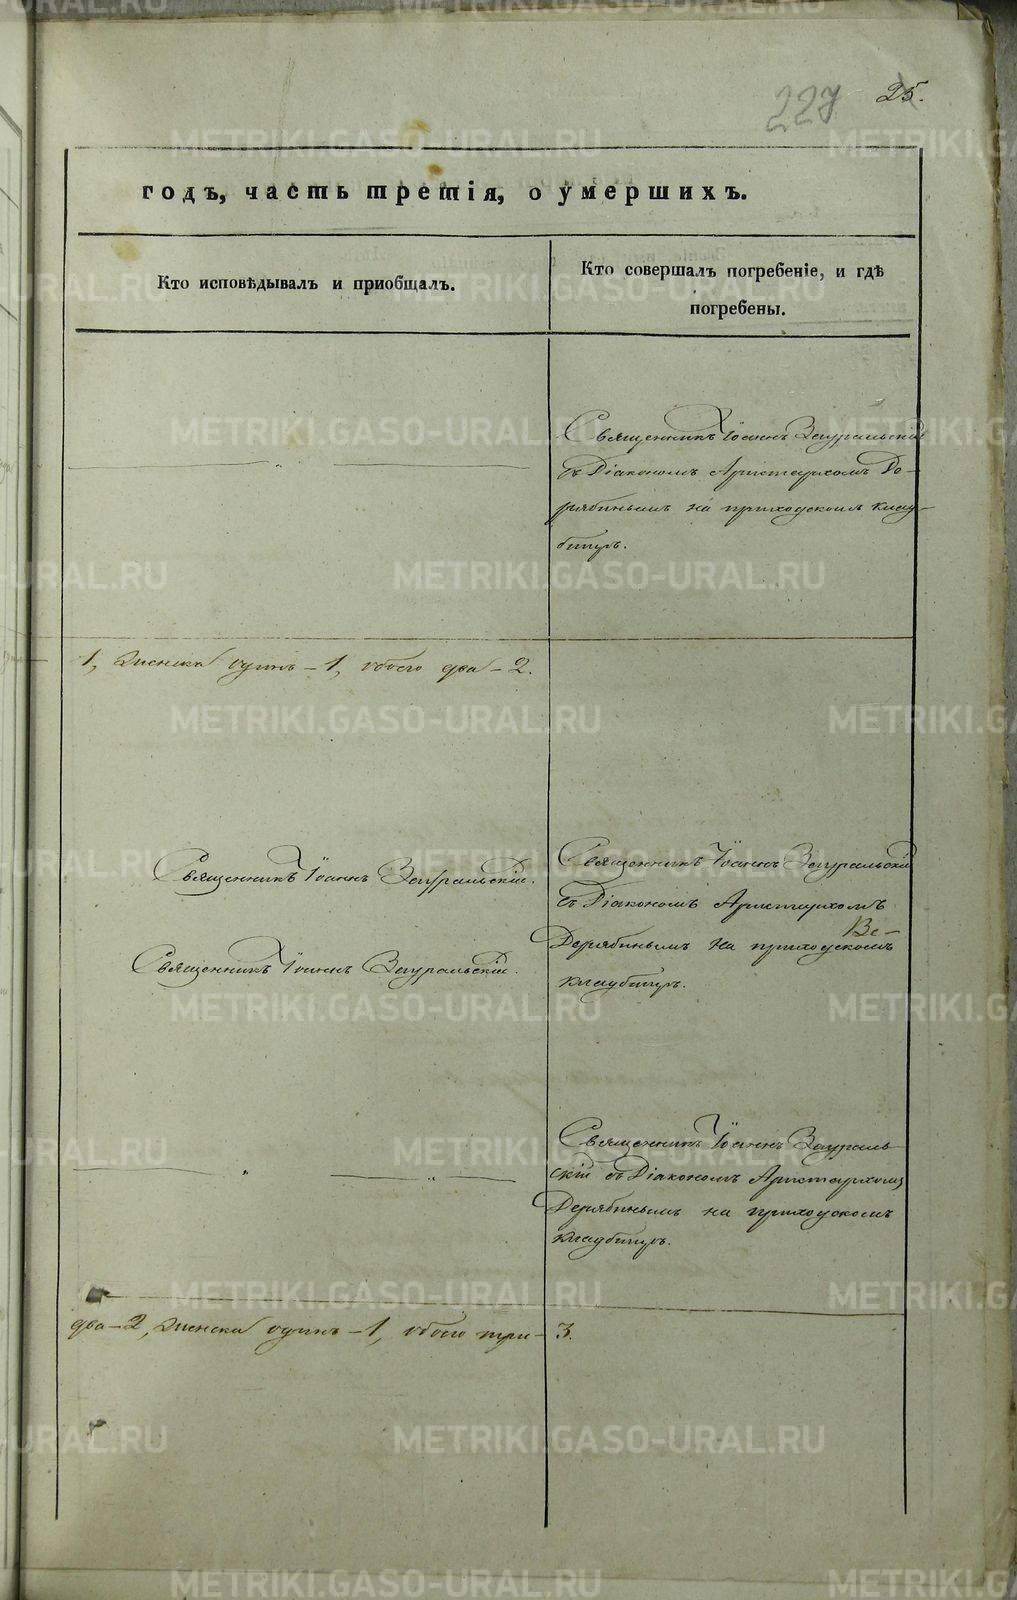 227 25.
годъ, часть третія, о умершихъ.
Кто исповѣдывалъ и приобщалъ.
Кто совершалъ погребеніе, и гдѣ
погребены.
Священникъ Іоаннъ Зауральскій
съ Діакономъ Аристархомъ Де-
рябинымъ на приходскомъ клад-
бищѣ.
1, женска одинъ – 1, обоего два – 2.
Священникъ Іоаннъ Зауральскій.
Священникъ Іоаннъ Зауральскій.
Священникъ Іоаннъ Зауральскій
съ Діакономъ Аристархомъ
Дерябинымъ на приходскомъ
кладбищѣ.
Священникъ Іоаннъ Заураль-
скій съ Діакономъ Аристархомъ
Дерябинымъ на приходскомъ
кладбищѣ.
два – 2, женска одинъ – 1, обоего три – 3.
METRIKI.GASO-URAL.RU